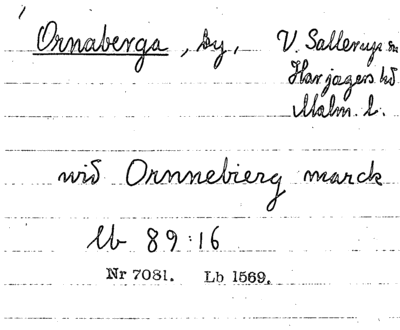 Ornaberga, by, V. Sallerups sn
Harjagers hd
Malm. l.
wid Ornnebierg marck
Lb 89:16
Nr 7081. Lb 1569.